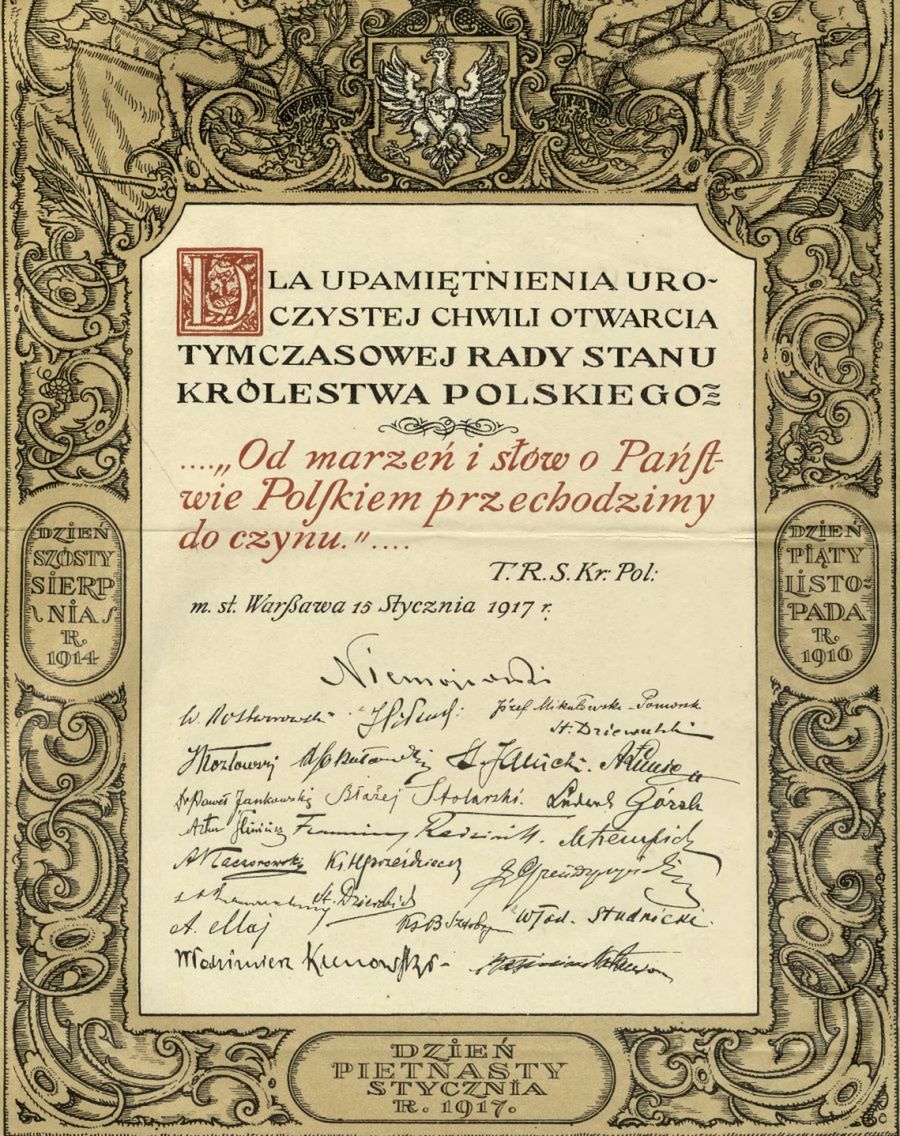 DLA UPAMIĘTNIENIA URO-
CZYSTEJ CHWILI OTWARCIA
TYMCZASOWEJ RADY STANU
KRÓLESTWA POLSKIEGO
....„Od marzeń i słów o Pańſt-
wie Polſkiem przechodzimy
do czynu.”....
T. R. S. Kr. Pol:
m. st. Warßawa 15 Stycznia 1917 r.
DZIEŃ
SZÓSTY
SIERP
NIA
R.
1914
DZIEŃ
PIĄTY
LISTO=
PADA
R.
1916
Niemojowski
W. Rostworowski
Józef Mikułowski-Pomorski
St. Dziewulski
Kozłowski
Dr Paweł Jankowski Błażej Stolarski. Ludwik Górski
Artur Śliwiński Franciszek Radziwiłł.
St. Dzierzbicki
A. Maj
Włod. Studnicki.
Włodzimierz Kunowski
DZIEŃ
PIETNASTY
STYCZNIA
R. 1917.